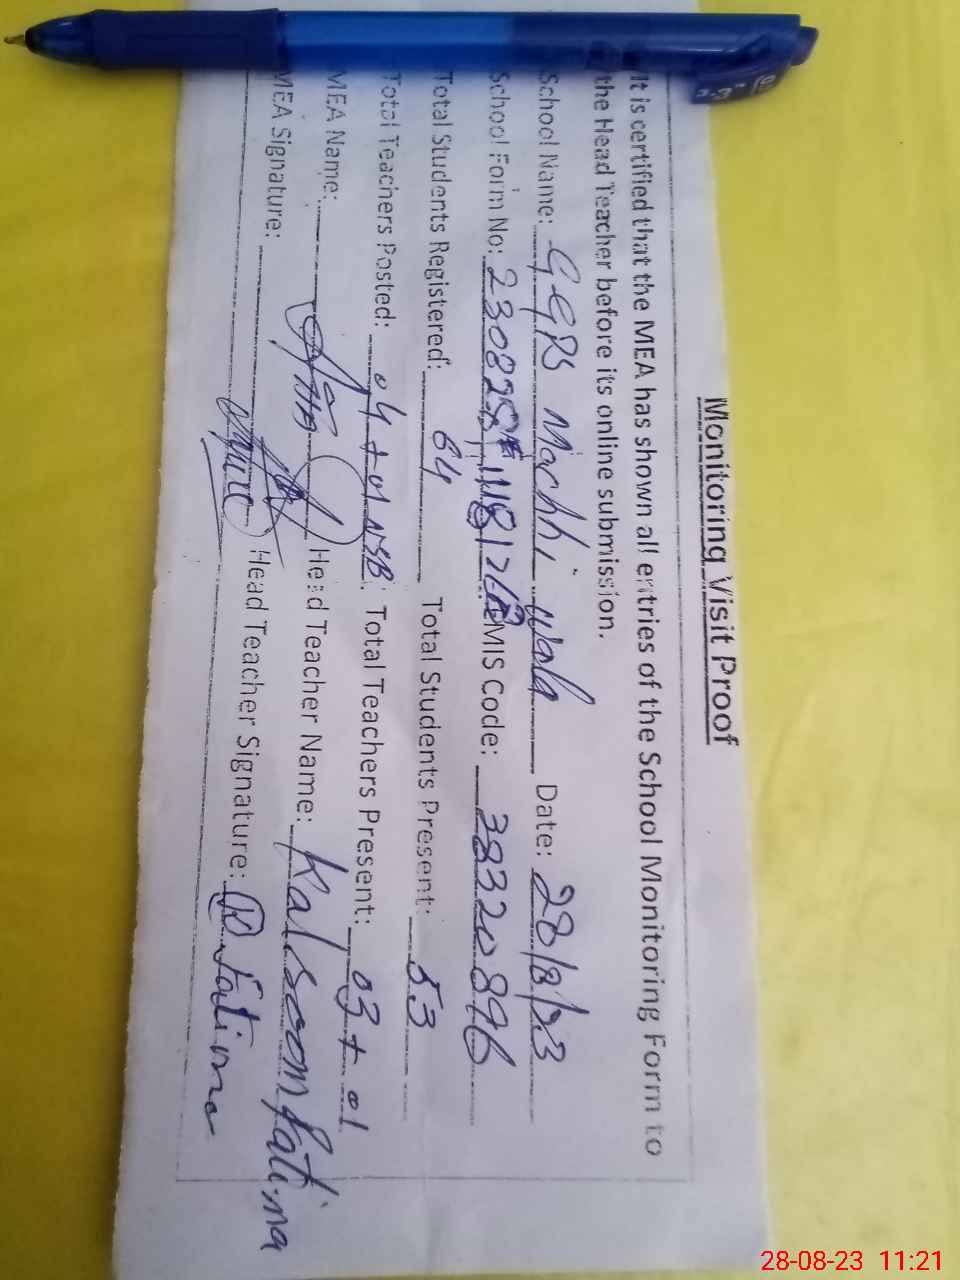 Monitoring Visit Proof
It is certified that the MEA has shown all entries of the School Monitoring Form to
the Head Teacher before its online submission.
School Name: GGPS Machhi Wala Date: 28/8/23
School Form No: EMIS Code: 38320896
Total Students Registered: 64 Total Students Present: 53
Total Teachers Posted: 04 + 01 NSB. Total Teachers Present: 03 + 01
MEA Name: Head Teacher Name: Kalsoom Fatima
MEA Signature: Head Teacher Signature: K Fatima
28-08-23 11:21